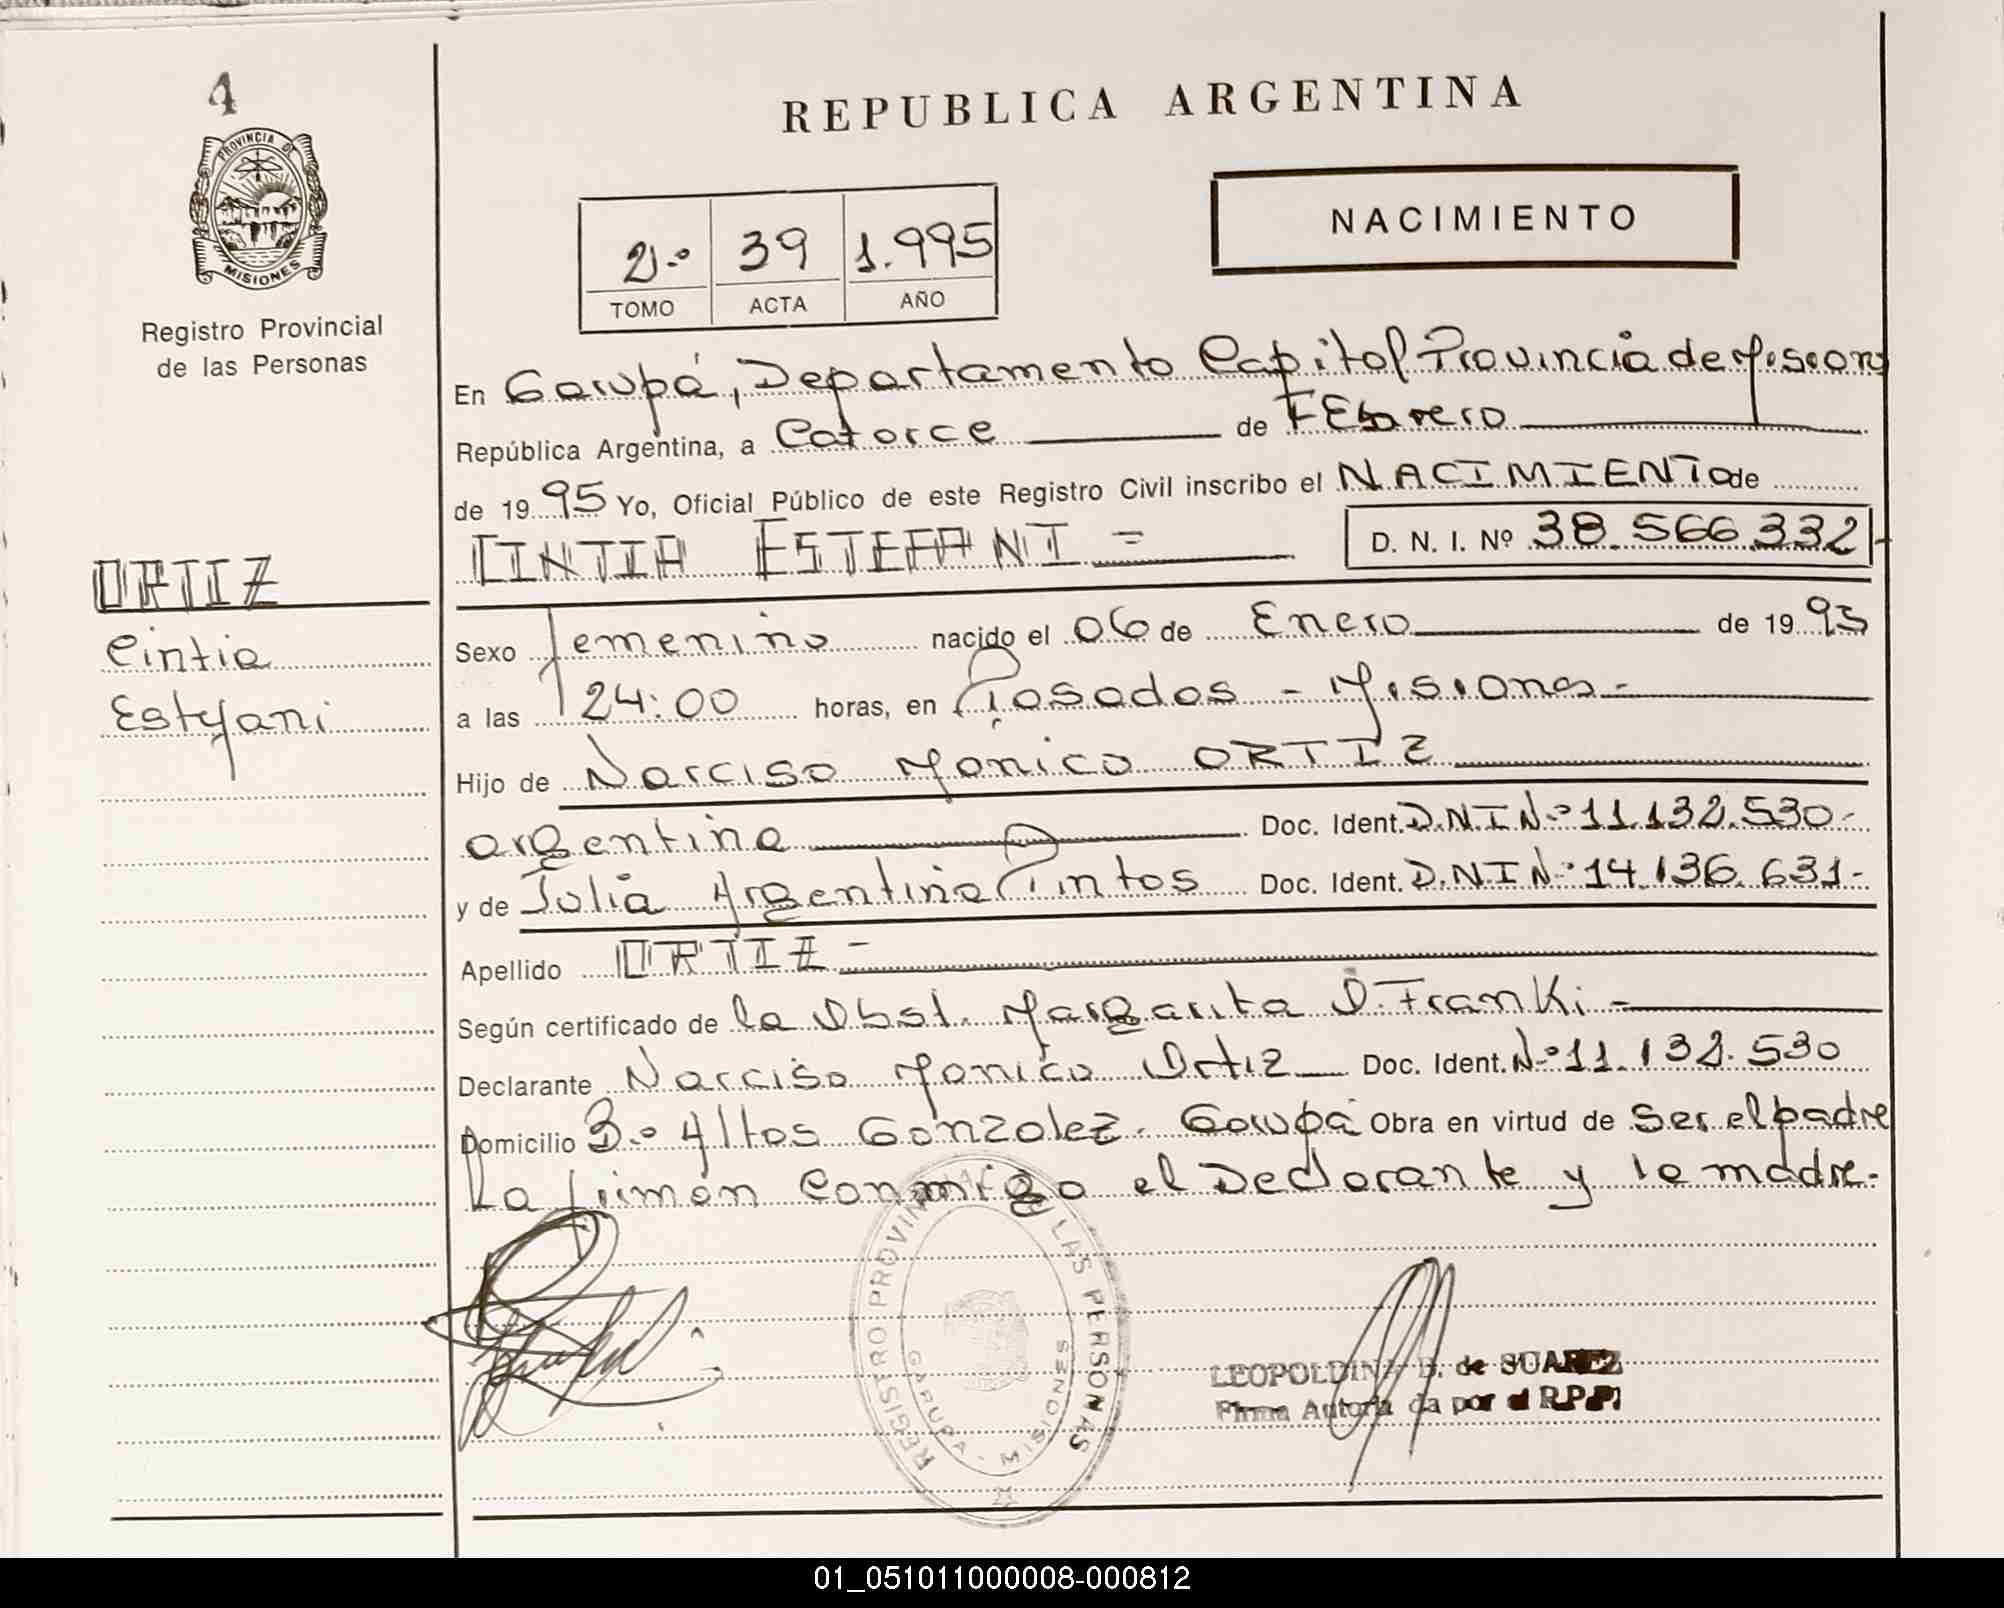 4
PROVINCIA DE
MISIONES
Registro Provincial
de las Personas
REPUBLICA ARGENTINA
2º 39 1.995
TOMO ACTA AÑO
NACIMIENTO
En Garupá, Departamento Capital Provincia de Misiones
República Argentina, a Catorce de FEbrero
de 1995 Yo, Oficial Público de este Registro Civil inscribo el NACIMIENTO de
CINTIA ESTEFANI =
D. N. I. Nº 38.566.332
ORTIZ
Cintia
Estefani
Sexo Femenino nacido el 06 de Enero de 1995
a las 24:00 horas, en Posadas - Misiones -
Hijo de Narciso Monico ORTIZ
argentina Doc. Ident. D.N.I Nº 11.132.530-
y de Julia Argentina Pintos Doc. Ident. D.N.I Nº 14.136.631-
Apellido ORTIZ -
Según certificado de la Obst. Margarita D. Franki -
Declarante Narciso Monico Ortiz Doc. Ident. Nº 11.132.530
Domicilio Bº Altos Gonzalez. Garupá Obra en virtud de Ser el padre
La firman conmigo el Declarante y la madre.
REGISTRO PROVINCIAL DE LAS PERSONAS
GARUPA - MISIONES
LEOPOLDINA B. de SUAREZ
Firma Autoriza da por el R.P.P.
01_051011000008-000812